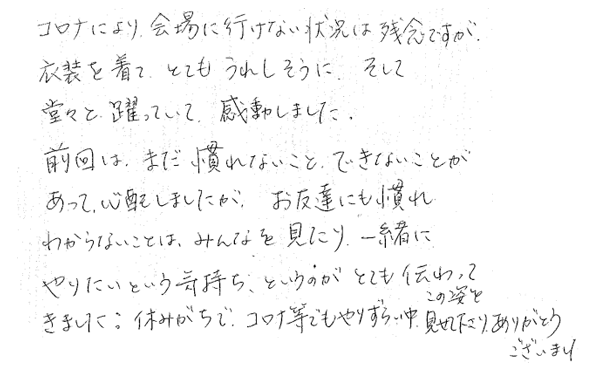 コロナにより、会場に行けない状況は残念ですが、
衣装を着て、とてもうれしそうに、そして
堂々と躍っていて、感動しました。
前回は、まだ慣れないこと、できないことが
あって、心配しましたが、お友達にも慣れ
わからないことは、みんなを見たり、一緒に
やりたいという気持ち、というのがとても伝わって
きました。休みがちで、コロナ等でもやりずらい中、この姿を見せて下さり、ありがとう
ございます